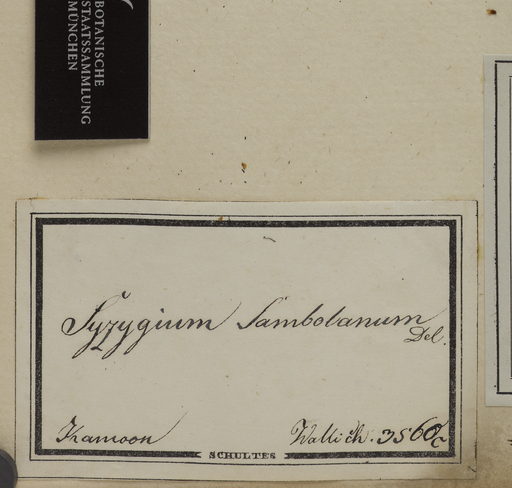 BOTANISCHE
STAATSSAMMLUNG
MÜNCHEN
Syzygium Jambolanum
Del.
Kamoon
Wallich. 3560
SCHULTES